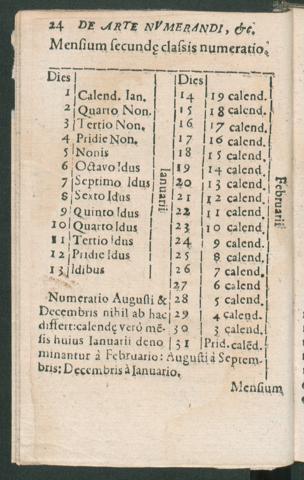 24 DE ARTE NVMERANDI, &c.
Mensium secundę classis numeratio.
Dies
1 Calend. Ian.
2 Quarto Non.
3 Tertio Non.
4 Pridie Non.
5 Nonis
6 Octavo Idus
7 Septimo Idus
8 Sexto Idus
9 Quinto Idus
10 Quarto Idus
11 Tertio Idus
12 Pridie Idus
13 Idibus
Ianuarii
Numeratio Augusti &
Decembris nihil ab hac
differt: calendę veró mē-
sis huius Ianuarii deno
minantur à Februario: Augusti à Septem-
bris: Decembris à Ianuario.
Dies
14 19 calend.
15 18 calend.
16 17 calend.
17 16 calend.
18 15 calend.
19 14 calend.
20 13 calend.
21 12 calend.
22 11 calend.
23 10 calend.
24 9 calend.
25 8 calend.
26 7 calend.
27 6 calend
28 5 calend.
29 4 calend.
30 3 calend.
31 Prid. calēd.
Februarii
Mensium